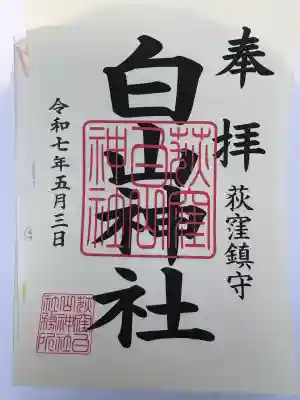 奉拝
荻窪鎮守
白山神社
荻窪白山神社
令和七年五月三日
荻窪白山神社社務所